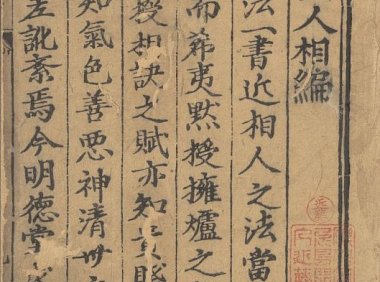 人相編
法一書近相人之法當
而希夷默授擁爐之
授相訣之賦亦知貴賤
知氣色善悪神清
差訛紊焉今明德堂